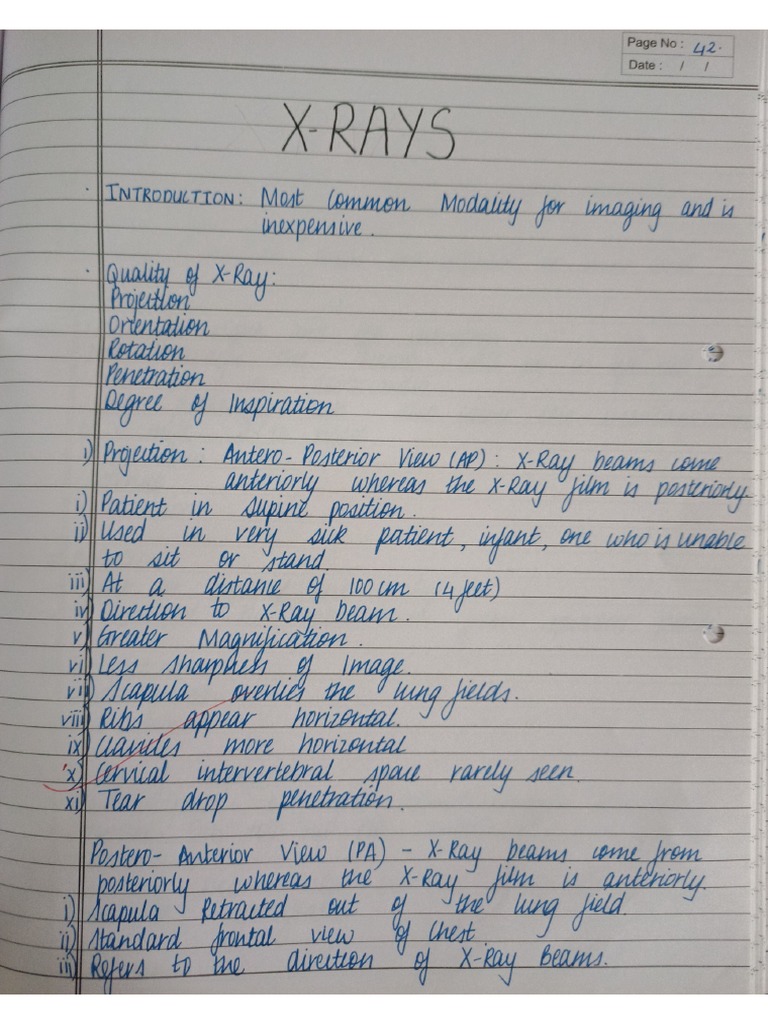 Page No : 42.
Date : / /
X-RAYS
INTRODUCTION: Most Common Modality for imaging and is
inexpensive.
Quality of X-Ray:
Projection
Orientation
Rotation
Penetration
Degree of Inspiration
i) Projection : Antero-Posterior View (AP) : X-Ray beams come
anteriorly whereas the X-Ray film is posteriorly
i) Patient in supine position.
ii) Used in very sick patient, infant, one who is unable
to sit or stand.
iii) At a distance of 100 cm (4 feet)
iv) Direction to X-Ray beam.
v) Greater Magnification.
vi) Less sharpness of Image.
vii) Scapula overlies the lung fields.
viii) Ribs appear horizontal.
ix) Clavicles more horizontal
x) Cervical intervertebral space rarely seen.
xi) Tear drop penetration.
Postero-Anterior View (PA) - X-Ray beams come from
posteriorly whereas the X-Ray film is anteriorly.
i) Scapula Retracted out of the lung field.
ii) Standard frontal view of Chest
iii) Refers to the direction of X-Ray Beams.